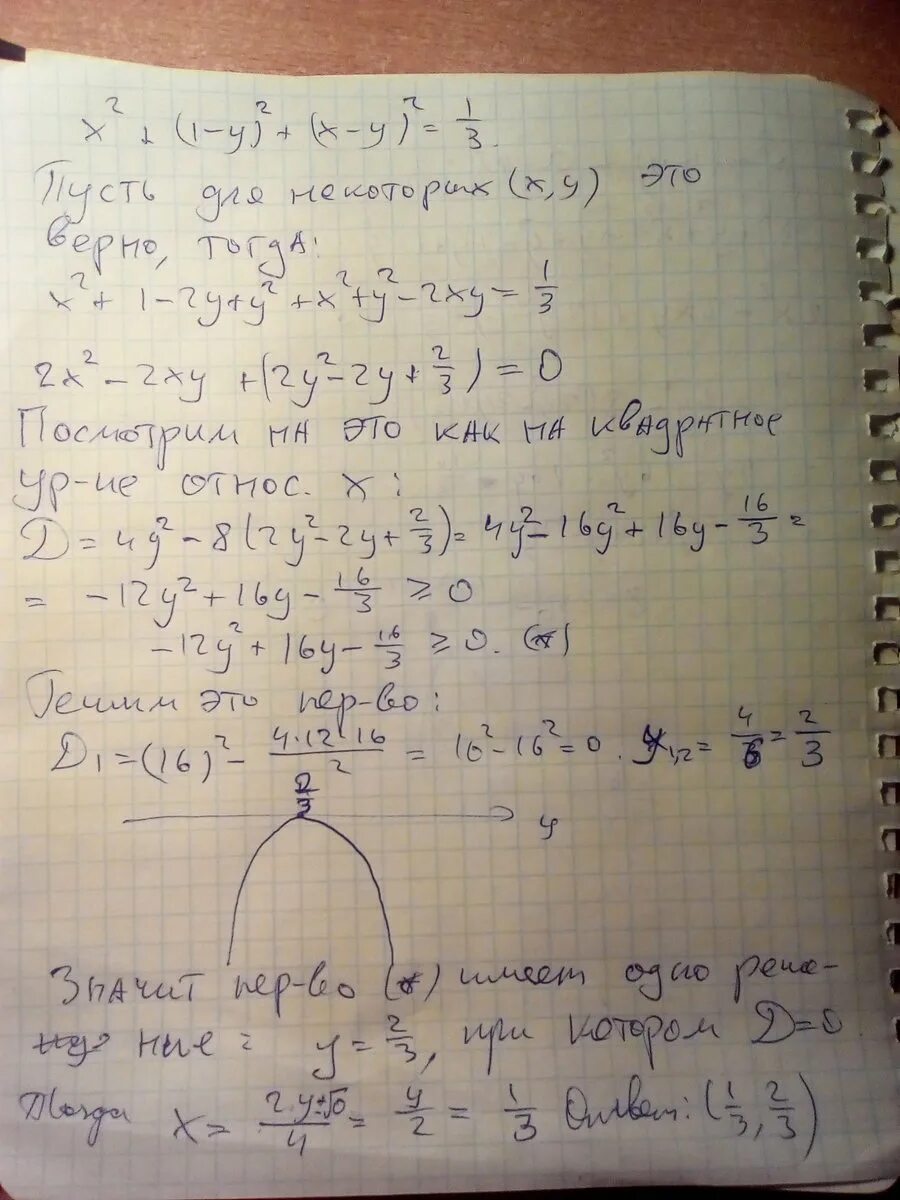 x² + (1-y)² + (x-y)² = 1/3.
Пусть для некоторых (x,y) это
верно, тогда:
x² + 1-2y+y² + x²+y²-2xy = 1/3
2x² - 2xy + (2y²-2y+2/3) = 0
Посмотрим на это как на квадратное
ур-ие относ. x:
D = 4y² - 8(2y²-2y+2/3) = 4y²-16y²+16y-16/3 =
= -12y²+16y-16/3 ≥ 0
-12y²+16y-16/3 ≥ 0. (*)
Решим это нер-во:
D₁ = (16)² - 4·12·16/2 = 16²-16² = 0. y₁,₂ = 4/6 = 2/3
2/3
y
Значит нер-во (*) имеет одно реше-
ние: y = 2/3, при котором D=0
Тогда x = 2·y±√0/4 = y/2 = 1/3 Ответ: (1/3, 2/3)